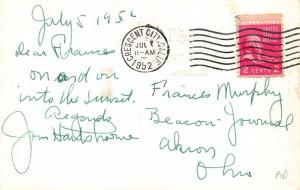 July 5 1952
CRESCENT CITY, CALIF.
JUL 7
11-AM
1952
UNITED STATES
2 CENTS 2
Dear Frances
on and on
into the Sunset.
Regards
Frances Murphy
Beacon-Journal
Akron
Ohio